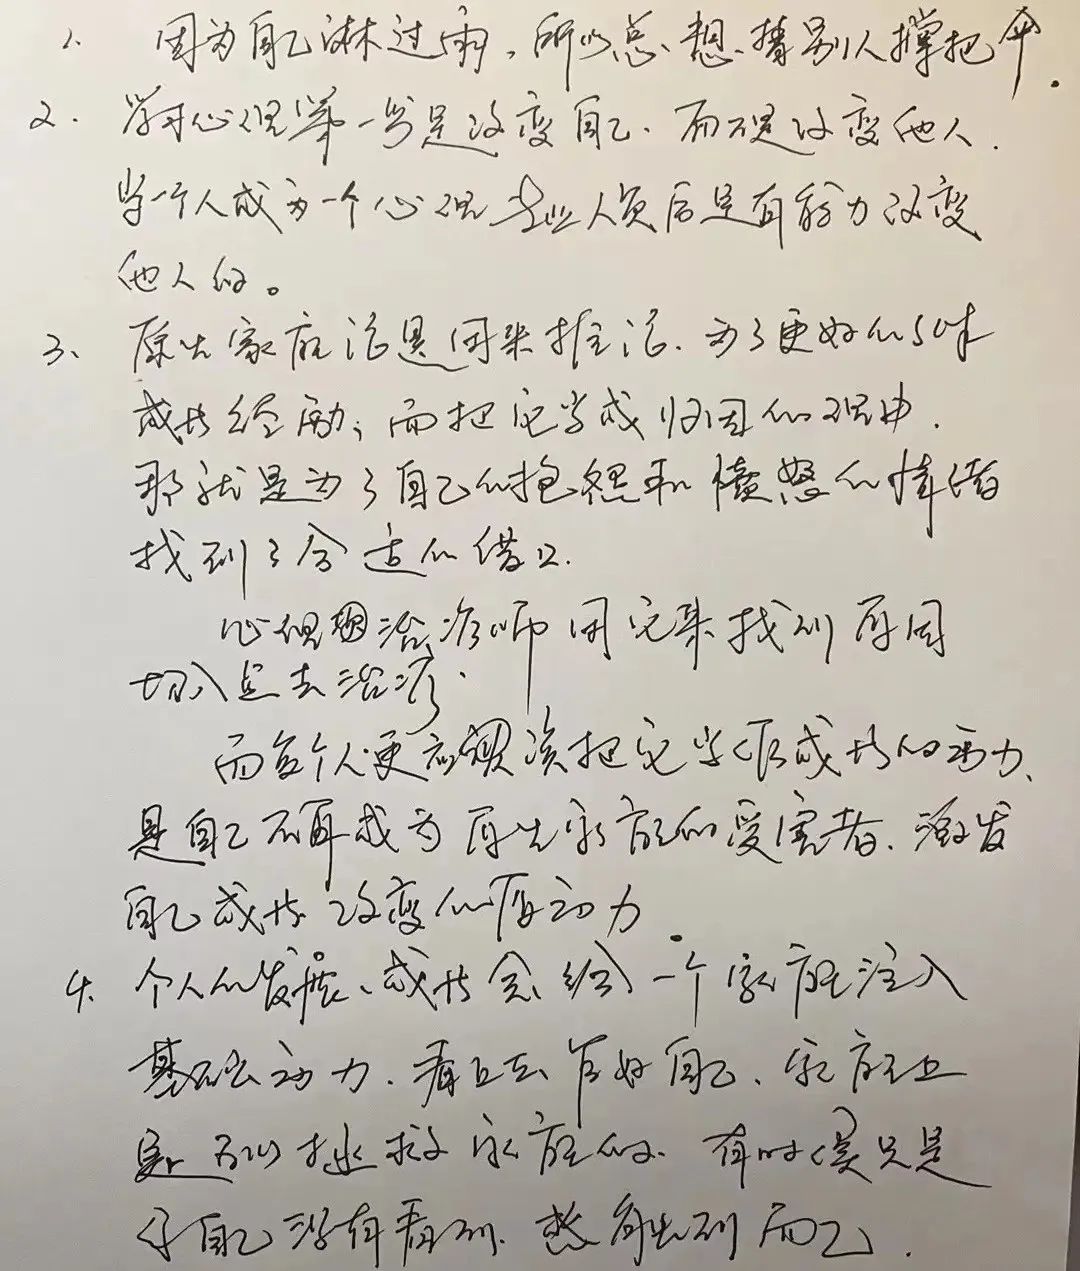 1. 因为自己淋过雨,所以总想替别人撑把伞.
2. 学习心理学一学是改变自己.而不是改变他人.
当一个人成为一个心理专业人员后是有能力改变
他人的。
3、原生家庭治是用来推治.为了更好的
成长经历;而把它当成归因的理由.
那就是为了自己的抱怨和愤怒的情绪
找到了合适的借口.
心理治疗师用它来找到原因
切入点去治疗.
而每个人更应该把它当做成长的动力、
是自己不再成为原生家庭的受害者.激发
自己成长改变的原动力.
4. 个人的发展、成长会给一个家庭注入
基础动力.看上去管好自己、家庭上
是可以拯救家庭的.有时候只是
你自己没有看到.感觉到而已.